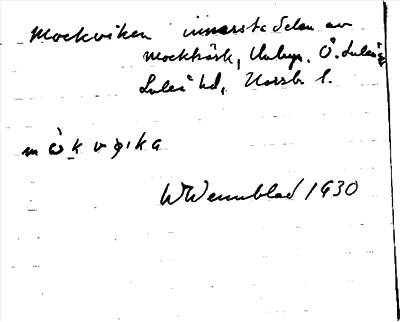 Mockviken innersta delen av
Mockträsk, Unbyn, Ö. Luleå sn
Luleå hd, Norrb. l.
W Wennblad 1930